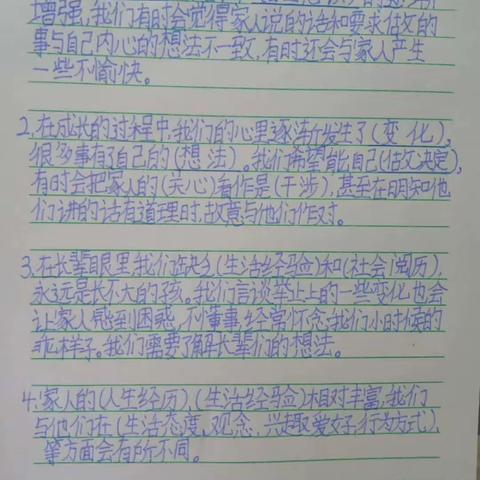 增强,我们有时会觉得家人说的话和要求做的
事与自己内心的想法不一致,有时还会与家人产生
一些不愉快。
2.在成长的过程中,我们的心里逐渐发生了(变化),
很多事有了自己的(想法)。我们希望能自己(做决定),
有时会把家人的(关心)看作是(干涉),甚至在明知他
们讲的话有道理时,故意与他们作对。
3.在长辈眼里,我们缺乏(生活经验)和(社会阅历),
永远是长不大的孩。我们言谈举止上的一些变化也会
让家人感到困惑,不懂事,经常怀念我们小时候的
乖样子。我们需要了解长辈们的想法。
4.家人的(人生经历)、(生活经验)相对丰富,我们
与他们在(生活态度、观念、兴趣爱好、行为方式)
等方面会有所不同。